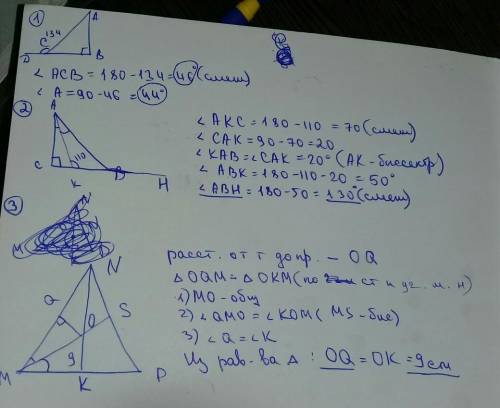 1
A
134
C
D B
∠ ACB = 180 - 134 = 46° (смеж)
∠ A = 90 - 46 = 44°
2
A
110
C K B H
∠ AKC = 180 - 110 = 70 (смеж)
∠ CAK = 90 - 70 = 20
∠ KAB = ∠ CAK = 20° (AK - биссектр)
∠ ABK = 180 - 110 - 20 = 50°
∠ ABH = 180 - 50 = 130° (смеж)
3
N
Q O S
9
M K P
расст. от т до пр. — OQ
Δ OQM = Δ OKM (по ст и уг. м. н)
1) MO - общ
2) ∠ QMO = ∠ KOM (MS - бис)
3) ∠ Q = ∠ K
Из рав-ва Δ : OQ = OK = 9 см